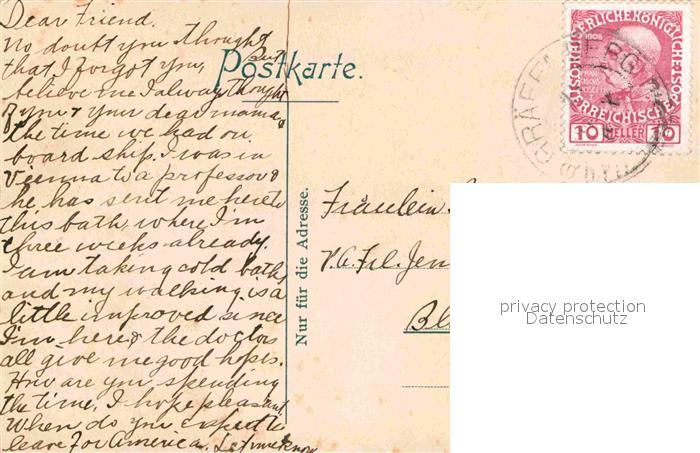 Dear Friend.
No doubt you thought
that I forgot you, but
believe me I alway thought
of you & your dear mama &
the time we had on
board ship. I was in
Vienna to a professor &
he has sent me here to
this bath, where I'm
three weeks already.
I am taking cold baths
and my walking is a
little improved since
I'm here & the doctors
all give me good hopes.
How are you spending
the time, I hope pleasant,
When do you expect to
leave for America. Let me know
Postkarte.
Nur für die Adresse.
Fräulein
Bl
KAISERLICHE KÖNIGLICHE
1908
ÖSTERREICHISCHE POST
10 HELLER 10
GRÄFENBERG
privacy protection
Datenschutz